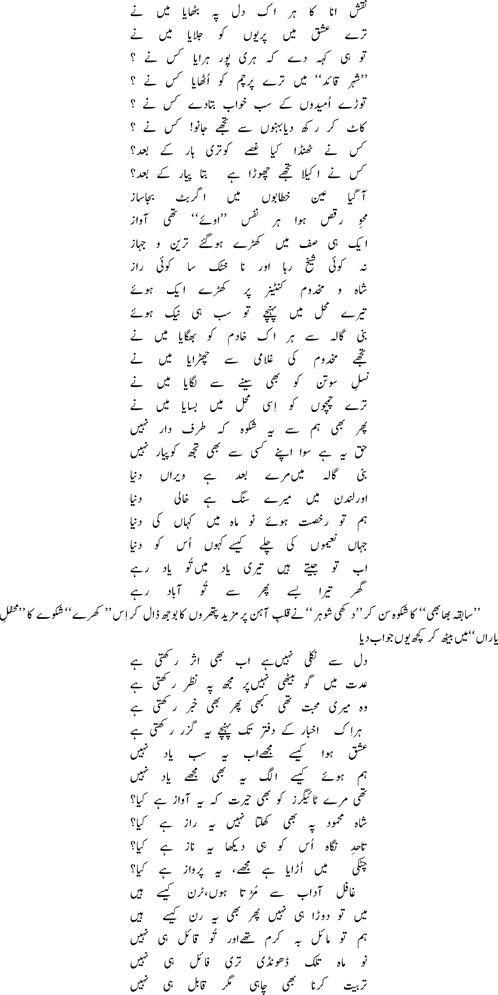 نقش انا کا ہر اک دل پہ بٹھایا میں نے
ترے عشق میں پریوں کو جلایا میں نے
تو ہی کہہ دے کہ ہری پور ہرایا کس نے ؟
’’شہر قائد‘‘ میں ترے پرچم کو اُٹھایا کس نے ؟
توڑے اُمیدوں کے سب خواب بتادے کس نے ؟
کاٹ کر رکھ دیا بہنوں سے تجھے جانو! کس نے ؟
کس نے ٹھنڈا کیا غصے کو تری ہار کے بعد؟
کس نے اکیلا تجھے چھوڑا ہے بتا پیار کے بعد؟
آ گیا عین خطابوں میں اگر بٹ بجا ساز
محوِ رقص ہوا ہر نفس ’’اوئے‘‘ تھی آواز
ایک ہی صف میں کھڑے ہوگئے ترین و جہاز
نہ کوئی شیخ رہا اور نا خٹک سا کوئی راز
شاہ و مخدوم کنٹینر پر کھڑے ایک ہوئے
تیرے محل میں پہنچے تو سب ہی نیک ہوئے
بنی گالہ سے ہر اک خادم کو بھگایا میں نے
تجھے مخدوم کی غلامی سے چھڑایا میں نے
نسلِ سوتن کو بھی سینے سے لگایا میں نے
ترے چمچوں کو اِسی محل میں بسایا میں نے
پھر بھی ہم سے یہ شکوہ کہ طرف دار نہیں
حق یہ ہے سوا اپنے کسی سے بھی تجھ کو پیار نہیں
بنی گالہ میں مرے بعد ہے ویراں دنیا
اور لندن میں میرے سنگ ہے خالی دنیا
ہم تو رخصت ہوئے نو ماہ میں کہاں کی دنیا
جہاں نعیموں کی چلے کیسے کہوں اُس کو دنیا
اب تو جیتے ہیں تیری یاد میں تُو یاد رہے
گھر تیرا بسے پھر سے تُو آباد رہے
’’سابقہ بھابھی‘‘ کا شکوہ سن کر ’’دکھی شوہر‘‘ نے قلبِ آہن پر مزید پتھروں کا بوجھ ڈال کر اِس ’’کھرے‘‘ شکوے کا ’’محفلِ
یاراں‘‘ میں بیٹھ کر کچھ یوں جواب دیا
دل سے نکلی نہیں ہے اب بھی اثر رکھتی ہے
عدت میں گو بیٹھی نہیں پر مجھ پہ نظر رکھتی ہے
وہ میری محبت تھی کبھی پھر بھی خبر رکھتی ہے
ہر اک اخبار کے دفتر تک پہنچے یہ گزر رکھتی ہے
عشق ہوا کیسے مجھے اب یہ سب یاد نہیں
ہم ہوئے کیسے الگ یہ بھی مجھے یاد نہیں
تھی مرے ٹائیگرز کو بھی حیرت کہ یہ آواز ہے کیا؟
شاہ محمود پہ بھی کھلتا نہیں یہ راز ہے کیا؟
تاحدِ نگاہ اُس کو ہی دیکھا یہ ناز ہے کیا؟
چٹکی میں اُڑایا ہے مجھے، یہ پرواز ہے کیا؟
غافل آداب سے مُڑتا ہوں، ٹرن کیسے ہیں
میں تو دوڑا ہی نہیں پھر بھی یہ رن کیسے ہیں
ہم تو مائل بہ کرم تھے اور تُو قائل ہی نہیں
نو ماہ تلک ڈھونڈی تری فائل ہی نہیں
تربیت کرنا بھی چاہی مگر قابل ہی نہیں